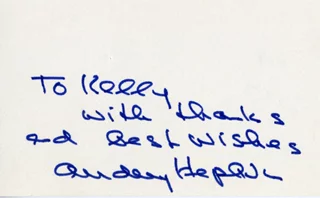 To Kelly
with thanks
and best wishes
Audrey Hepburn